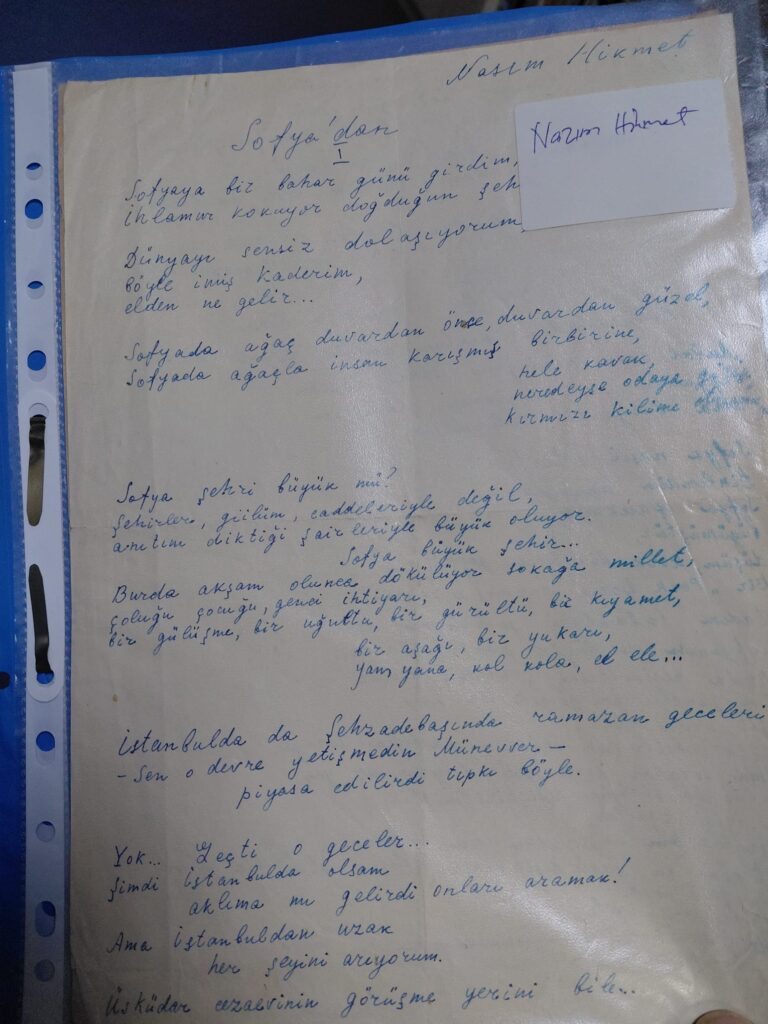 Nasım Hikmet
Nazım Hikmet
Sofya'dan
I
Sofyaya bir bahar günü girdim,
ihlamur kokuyor doğduğun şeh
Dünyayı sensiz dolaşıyorum,
böyle imiş kaderim,
elden ne gelir...
Sofyada ağaç duvardan önce, duvardan güzel,
Sofyada ağaçla insan karışmış birbirine,
hele kavak,
neredeyse odaya
kırmızı kilime
Sofya şehri büyük mü?
şehirler, gülüm, caddeleriyle değil,
anıtını diktiği şairleriyle büyük oluyor.
Sofya büyük şehir...
Burda akşam olunca dökülüyor sokağa millet,
çoluğu çocuğu, genci ihtiyarı,
bir gülüşme, bir uğultu, bir gürültü, bir kıyamet,
bir aşağı, bir yukarı,
yan yana, kol kola, el ele...
İstanbulda da Şehzadebaşında ramazan geceleri
-Sen o devre yetişmedin Münevver-
piyasa edilirdi tıpkı böyle.
Yok... Geçti o geceler...
Şimdi İstanbulda olsam
aklıma mı gelirdi onları aramak!
Ama İstanbuldan uzak
her şeyini arıyorum.
Üsküdar cezaevinin görüşme yerini bile...